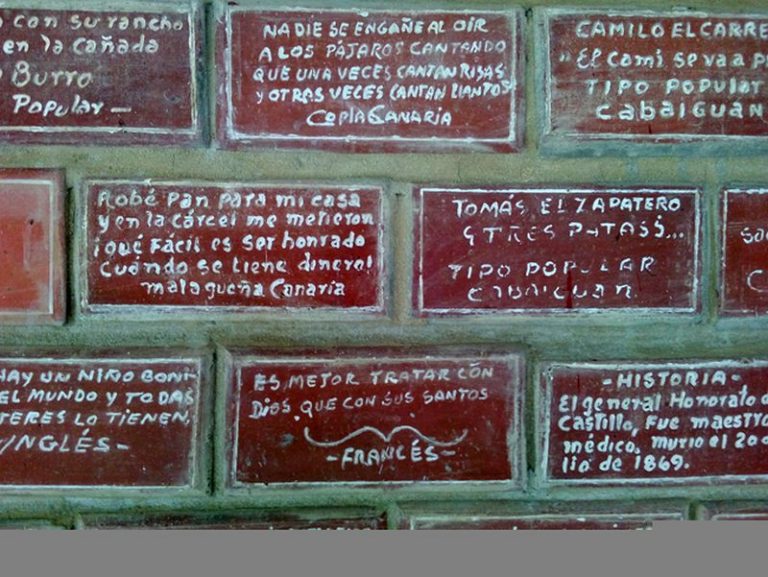 con su rancho
en la cañada
Burro
Popular -
NADIE SE ENGAÑE AL OIR
A LOS PÁJAROS CANTANDO
QUE UNA VECES CANTAN RISAS
y OTRAS VECES CANTAN LLANTOS
Copla Canaria
CAMILO EL CARRE
"El Cami se va a P
TIPO POPULAR
Cabaiguan
Robé pan para mi casa
y en la cárcel me metieron
¡qué Fácil es ser honrado
Cuándo se tiene dinero!
malagueña Canaria
TOMÁS EL ZAPATERO
TIPO POPULAR
CABAIGUAN
HAY UN NIÑO BONI-
EL MUNDO Y TODAS
TERES LO TIENEN,
INGLÉS-
ES MEJOR TRATAR CON
Dios QUE CON SUS SANTOS
-FRANCÉS-
-HISTORIA-
El general Honorato d
Castillo, fue maestro
médico. murio el 20 d
lio de 1869.